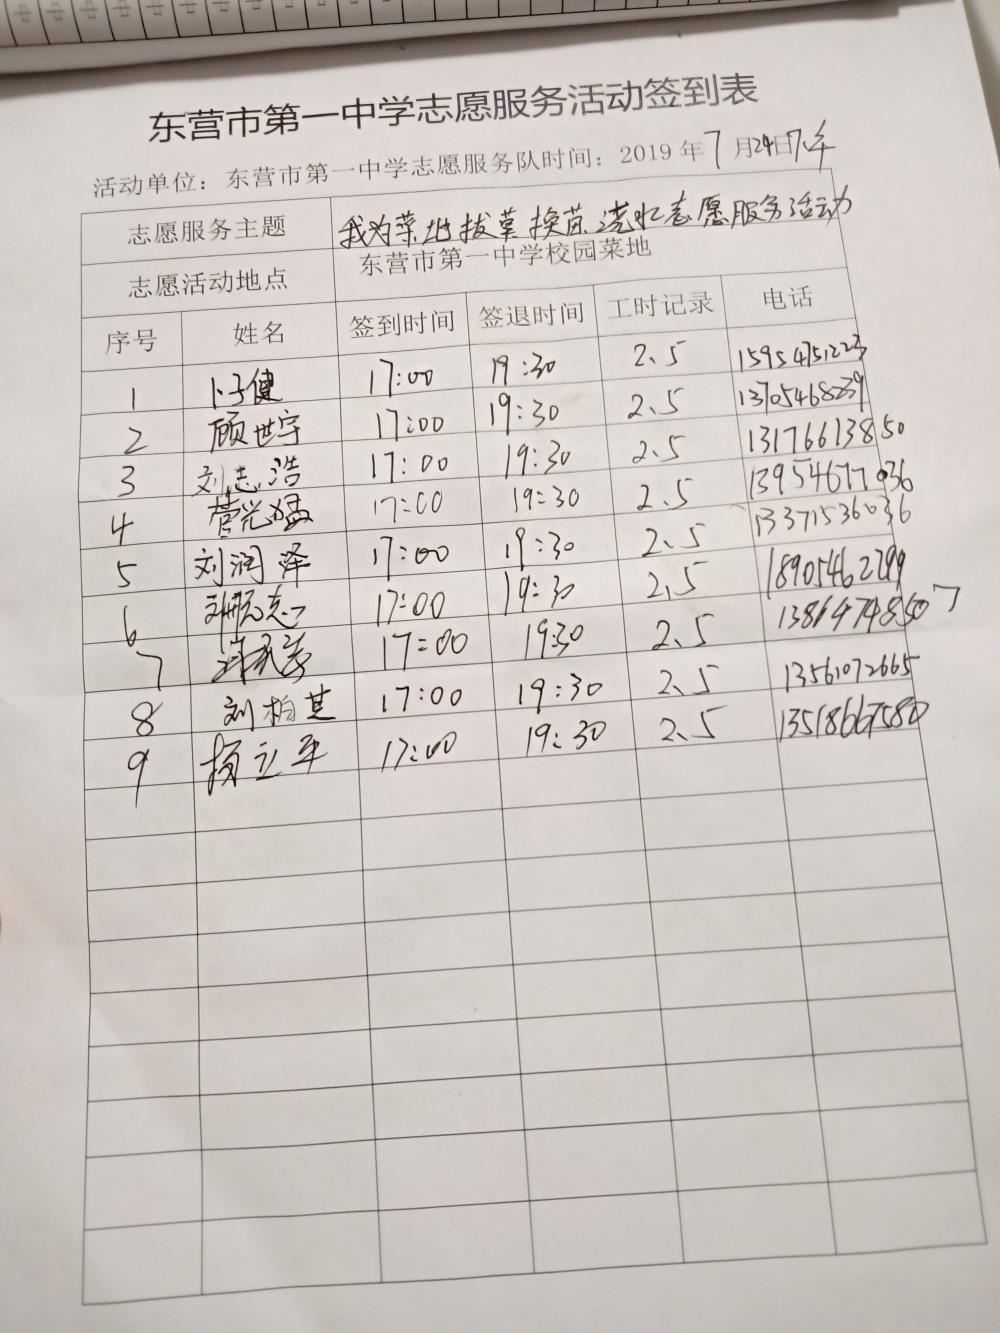 东营市第一中学志愿服务活动签到表
活动单位：东营市第一中学志愿服务队时间：2019年7月24日下午
志愿服务主题 我为菜地拔草换苗浇水志愿服务活动
志愿活动地点 东营市第一中学校园菜地
序号 姓名 签到时间 签退时间 工时记录 电话
1 卜子健 17:00 19:30 2、5 15954751223
2 顾世宇 17:00 19:30 2、5 13705468239
3 刘志浩 17:00 19:30 2、5 13176613850
4 17:00 19:30 2、5 13954677036
5 刘润泽 17:00 19:30 2、5 13371536036
6 17:00 19:30 2、5 18905462799
7 17:00 19:30 2、5 13864748507
8 刘柏其 17:00 19:30 2、5 13561072665
9 杨立平 17:00 19:30 2、5 13518667580